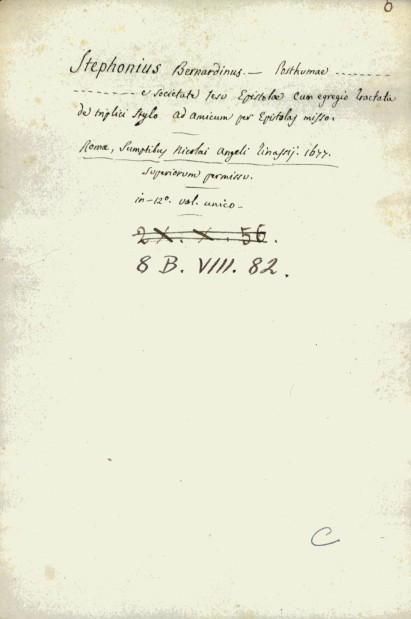 0
Stephonius Bernardinus. — Posthumae ..........
- - - - - - - - - e societate Jesu Epistolae cum egregio tractatu
de triplici stylo ad amicum per Epistolas misso.
Romæ, Sumptibus Nicolai Angeli Tinassij. 1677.
Superiorum permissu.
in-12º. vol. unico-
2X. X. 56.
8 B. VIII. 82.
C